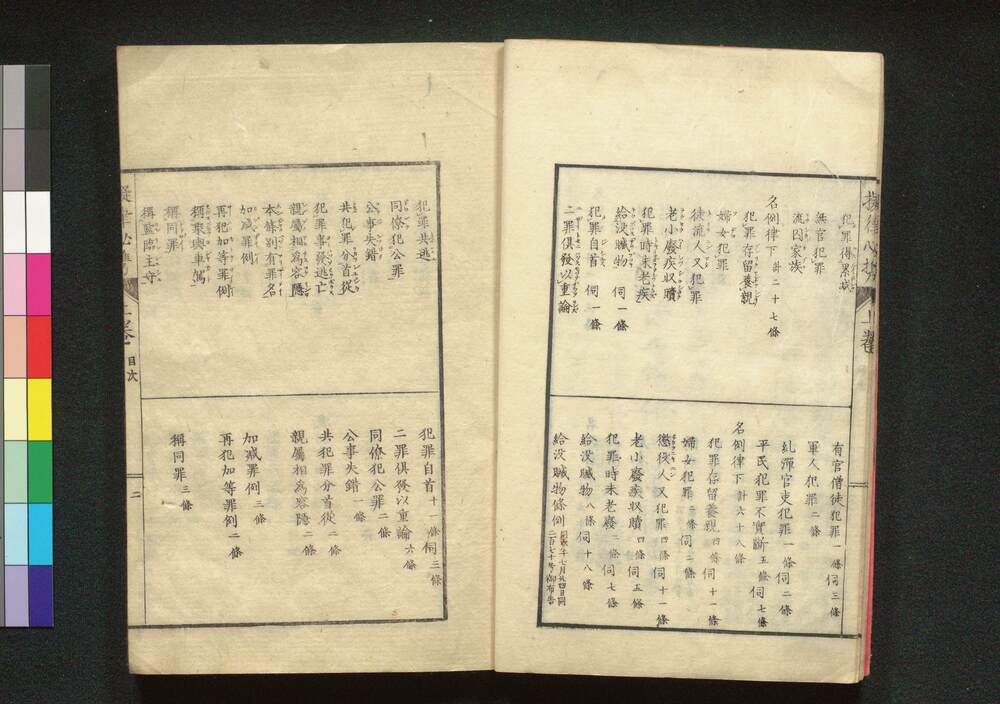 犯罪得累減
無官犯罪
流囚家族
名例律下 計二十七條
犯罪存留養親
婦女犯罪
徒流人又犯罪
老小廢疾収贖
犯罪時未老疾
給没贓物 伺一條
犯罪自首 伺一條
二罪俱發以重論
有官僧徒犯罪 一條 伺三條
軍人犯罪 二條
糺彈官吏犯罪 一條 伺二條
平民犯罪不實斷 五條 伺七條
名例律下 計六十八條
犯罪存留養親 四條 伺十一條
婦女犯罪 三條 伺二條
懲役人又犯罪 四條 伺十一條
老小廢疾収贖 四條 伺五條
犯罪時未老廢 二條 伺七條
給没贓物 八條 伺十八條
給没贓物條例
上巻
犯罪共逃
同僚犯公罪
公事失錯
共犯罪分首從
犯罪事發逃亡
親屬相為容隱
本條別有罪名
加减罪例
再犯加等罪例
稱乘輿車駕
稱同罪
稱監臨主守
犯罪自首 十一條 伺三條
二罪俱發以重論 六條
同僚犯公罪 二條
公事失錯 一條
共犯罪分首從 二條
親屬相為容隱 二條
加减罪例 三條
再犯加等罪例 二條
稱同罪 三條
目次
二